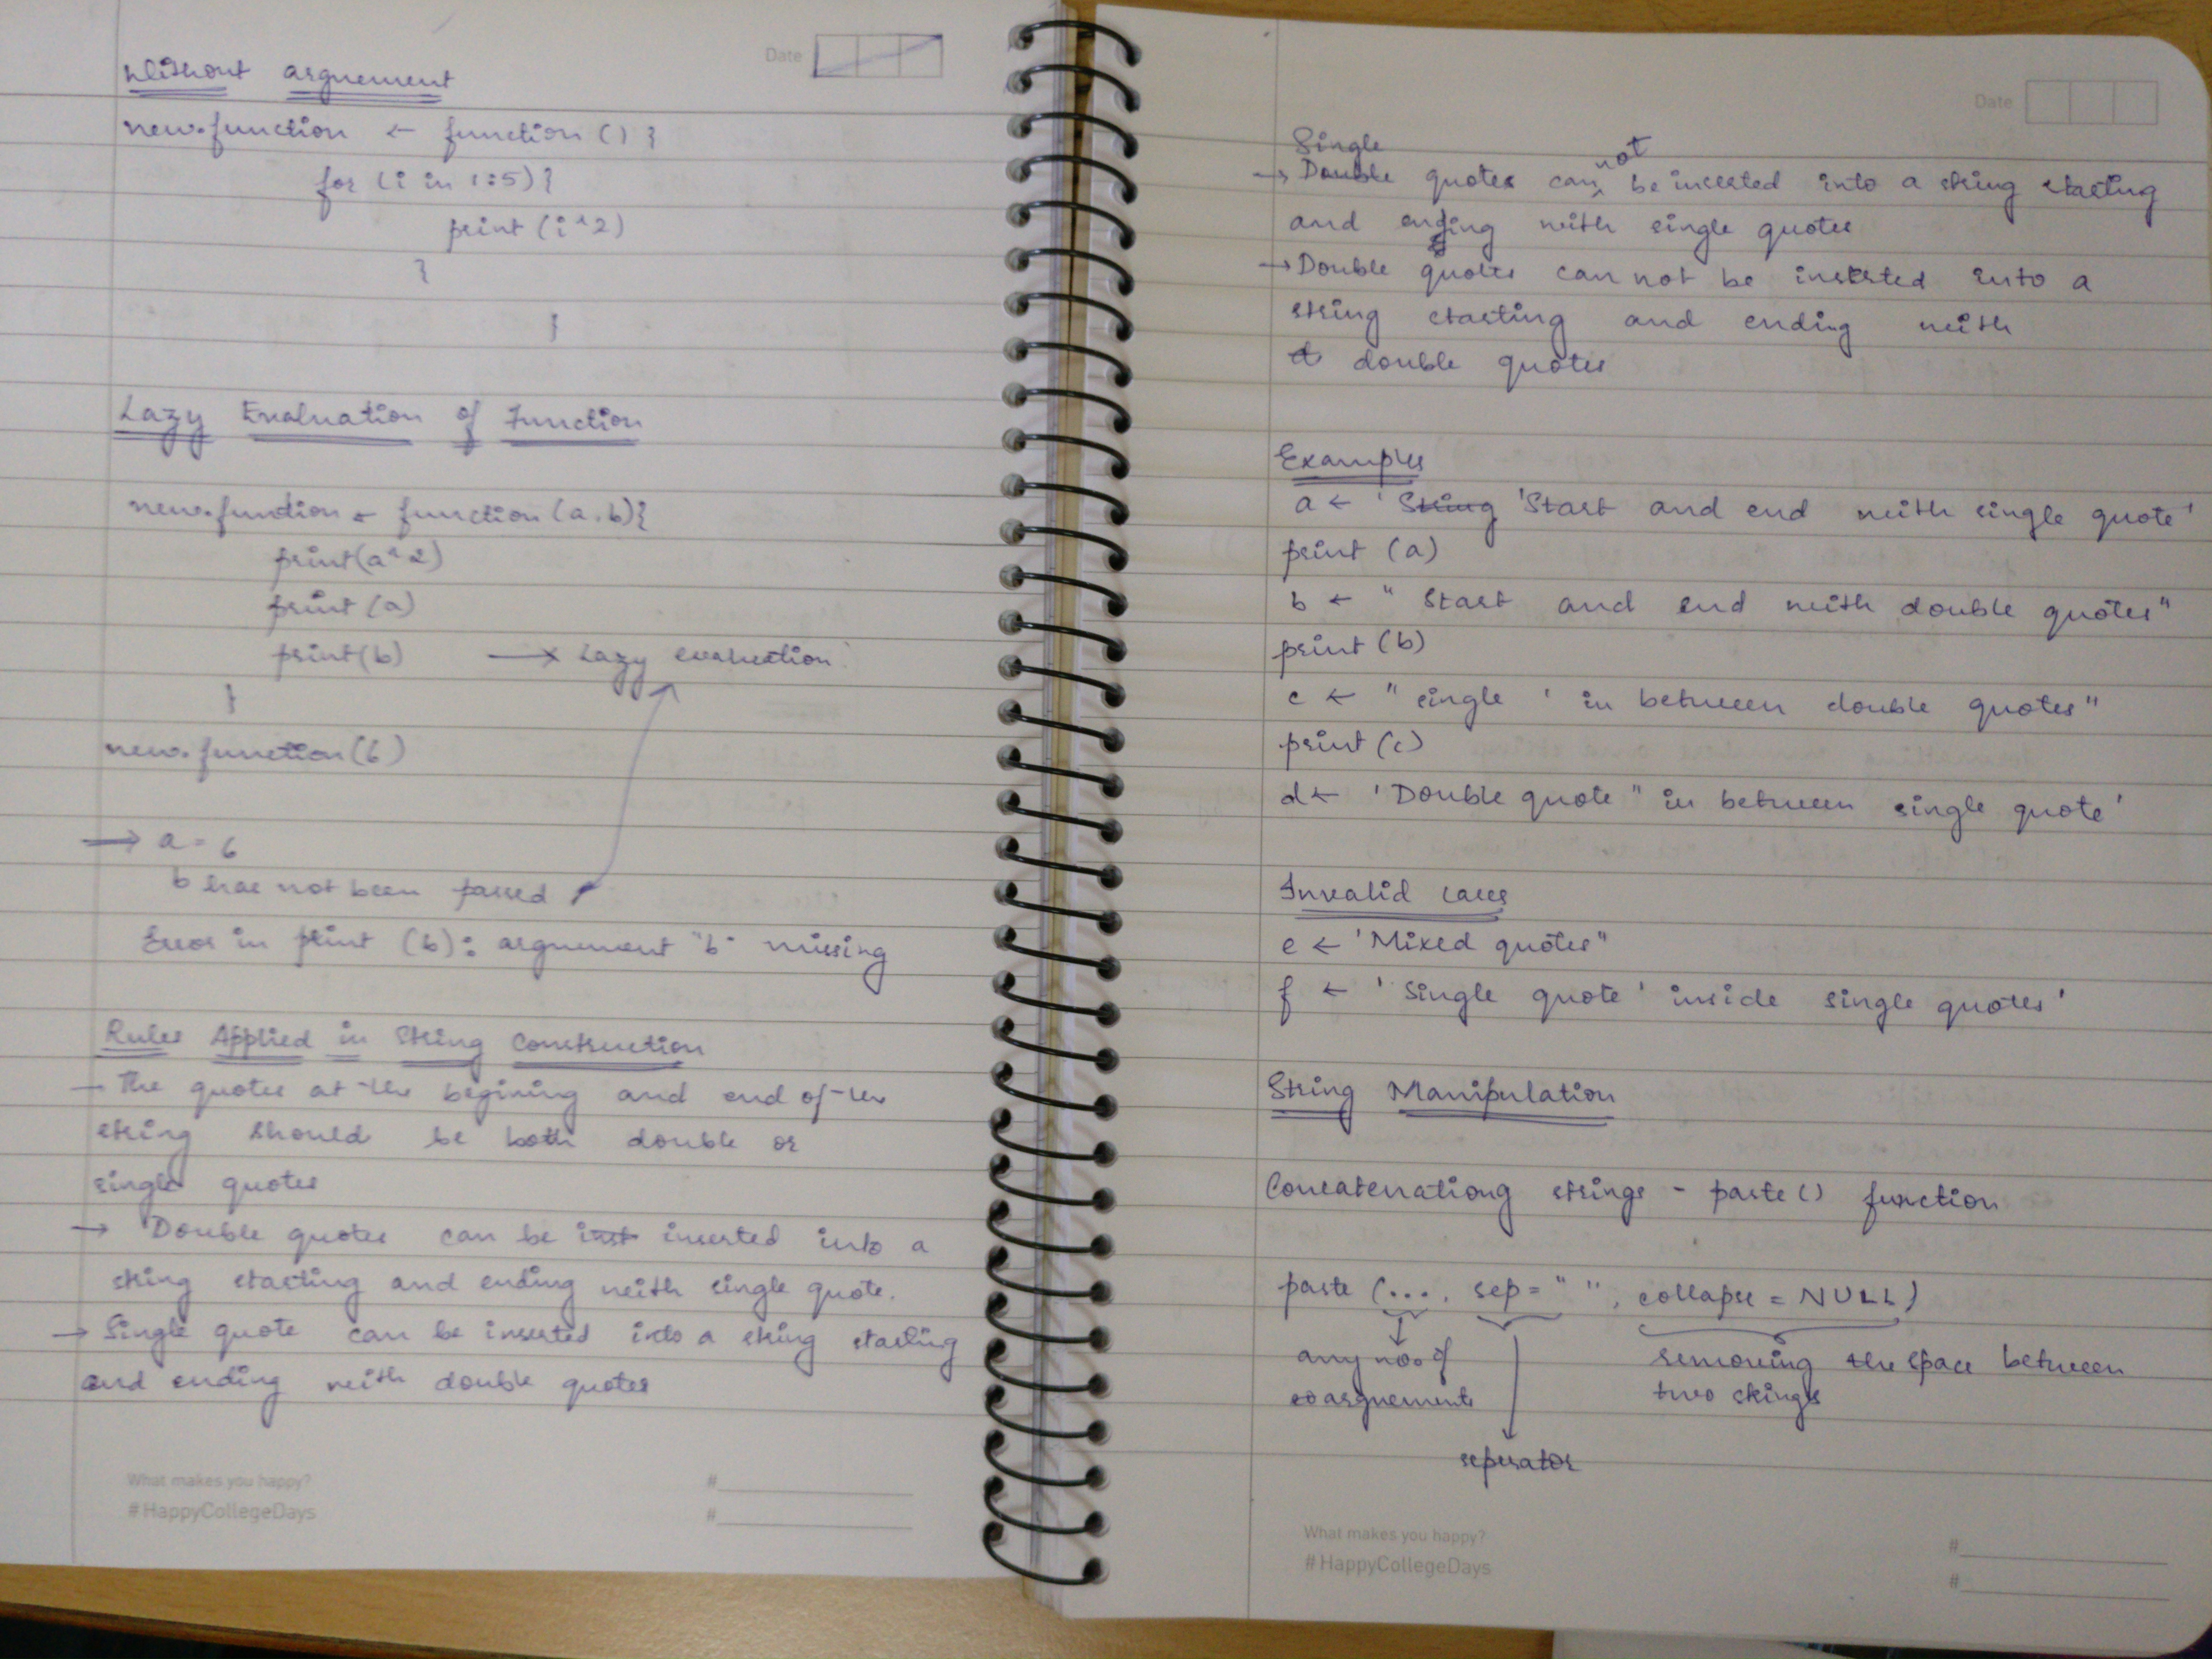 Date
Without arguement
new.function ← function () {
for (i in 1:5) {
print (i^2)
}
}
Lazy Evaluation of Function
new.function ← function (a,b){
print(a^2)
print (a)
print(b) → Lazy evaluation
}
new.function(6)
→ a = 6
b has not been passed
Error in print (b): arguement "b" missing
Rules Applied in String Construction
- The quotes at the begining and end of the
string should be both double or
single quotes
→ Double quotes can be inserted into a
string starting and ending with single quote.
→ Single quote can be inserted into a string starting
and ending with double quotes
What makes you happy?
#HappyCollegeDays
#
#
Date
Single
→ Double quotes can not be inserted into a string starting
and ending with single quotes
→ Double quotes can not be inserted into a
string starting and ending with
double quotes
Examples
a ← 'String 'Start and end with single quote'
print (a)
b ← " Start and end with double quotes"
print (b)
c ← " single ' in between double quotes"
print (c)
d ← 'Double quote " in between single quote'
Invalid cases
e ← 'Mixed quotes"
f ← ' Single quote ' inside single quotes'
String Manipulation
Concatenationg strings - paste () function
paste (..., sep = " ", collapse = NULL)
any no. of removing the space between
arguements two strings
seperator
What makes you happy?
#HappyCollegeDays
#
#